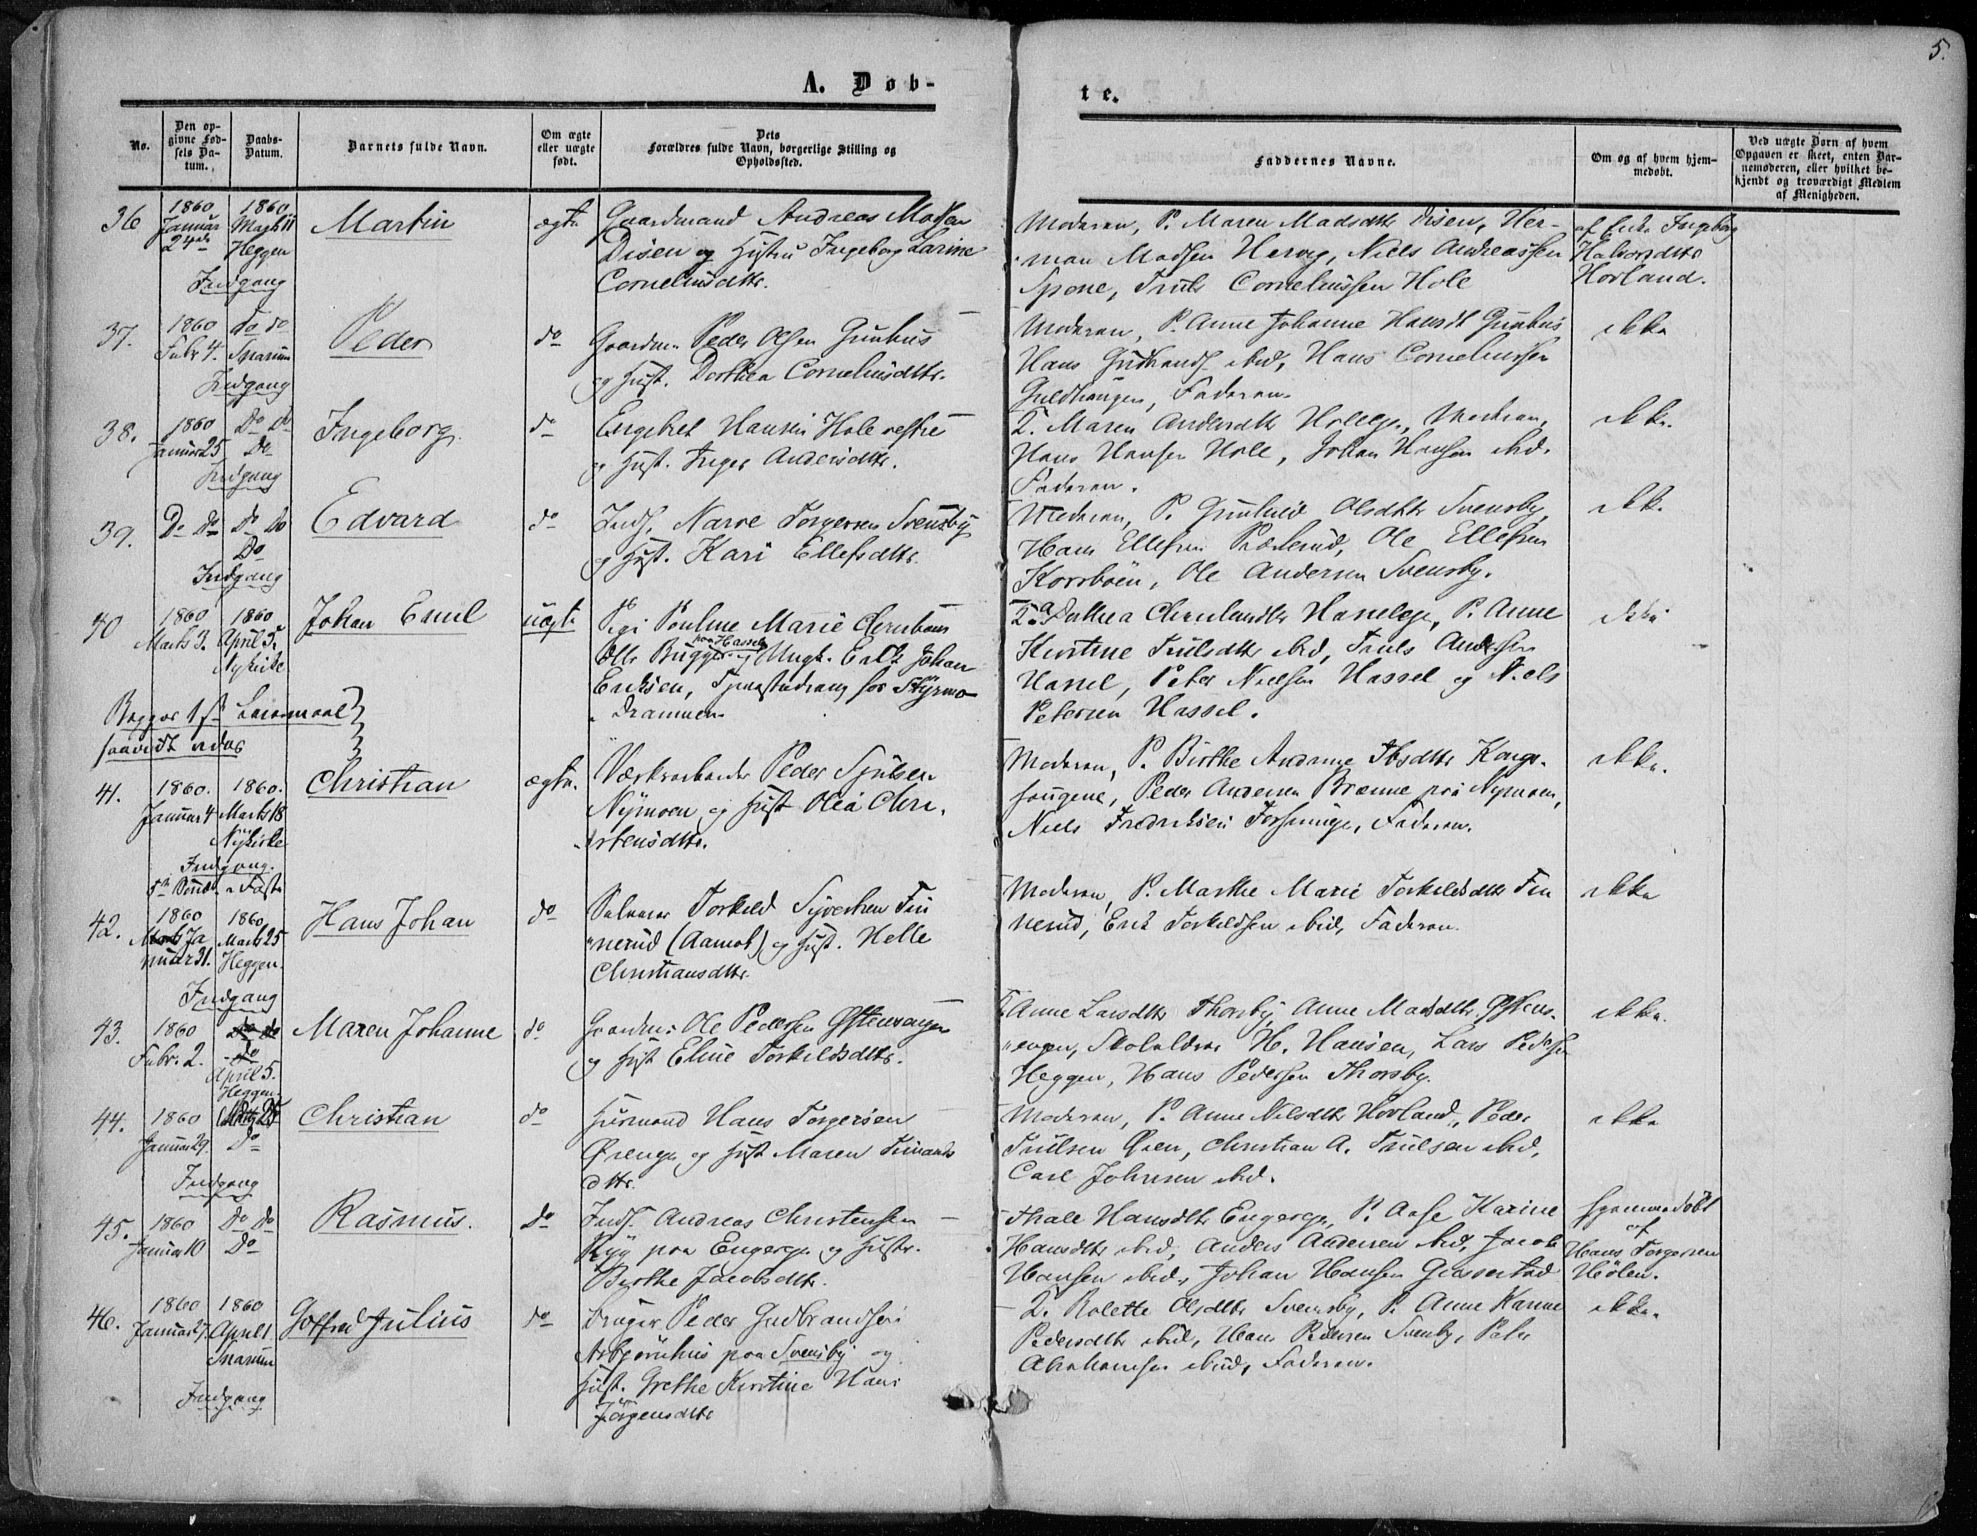 5.
A. Døb-
te.
No.
Den op-
givne Fød-
sels Da-
tum.
Daabs-
Datum.
Barnets fulde Navn.
Om ægte
eller uægte
født.
Dets
Forældres fulde Navn, borgerlige Stilling og
Opholdssted.
Faddernes Navne.
Om og af hvem hjem-
medøbt.
Ved uægte Børn af hvem
Opgaven er skeet, enten Bar-
nemoderen, eller hvilket be-
kjendt og troværdigt Medlem
af Menigheden.
36
1860
Januar
24de
1860
Marts 11
Heggen
Indgang
Martin
ægte
Gaardmand Andreas Madsen
Disen og Hustru Ingeborg Larine
Corneliusdttr.
Moderen, P. Maren Madsdttr Disen, Her-
man Madsen Hervig, Niels Andreassen
Spone, Truls Corneliussen Hole
af Enke Ingeborg
Halvorsdttr
Hovland.
37.
1860
Febr 4.
Do do
Snarum
Indgang
Peder
do
Gaardm. Peder Olsen Gunhus
og Hust. Dorthea Corneliusdttr.
Moderen, P. Anne Johanne Hansdt Gunhus
Hans Gudbrands. ibid, Hans Corneliussen
Guldhaugen, Faderen.
ikke
38.
1860
Januar 25
Do Do
Do
Indgang
Ingeborg.
do
Engebret Hansen Hole vestre
og Hust. Inger Andersdttr.
T. Maren Andersdttr Hollegr, Moderen,
Hans Hansen Hole, Johan Hansen ibid.
Faderen.
ikke.
39.
Do Do
Do Do
Do
Indgang
Edvard
do
Inds. Narve Torgersen Svensby
og Hust. Kari Ellefsdttr.
Moderen, P. Gunhild Olsdttr Svensby,
Hans Ellefsen Præsterud, Ole Ellefsen
Korsbøen, Ole Andersen Svensby.
ikke.
40
1860
Marts 3.
1860
April 5.
Nykirke
Begges 1ste Leiermaal
saavidt vides
Johan Emil
uægte
Pige Pouline Marie
paa Hassel
og Ungk. Erik Johan
Eriksen, Tjenestedreng
Drammen.
Dorthea Hasselegr, P. Anne
Kirstine Trulsdttr ibid, Truls Andersen
Hassel, Peter Nielsen Hassel og Niels
Petersen Hassel.
ikke
41.
1860.
Januar 4
1860.
Marts 18
Nykirke
Indgang.
Christian
ægte.
Værksarbeider Peder Sjulsen
Nymoen og Hust Olea Chri-
stensdttr.
Moderen, P. Birthe Andrine Ibsdttr Konge-
haugene, Peder Andersen Brænne paa Nymoen,
Niels Fredriksen, Faderen.
ikke.
42.
1860
Ja
nuar 31.
1860
Marts 25
Heggen.
Indgang
Hans Johan
do
Selveier Torkild Syversen Fin
nerud (Aamot) og Hust. Helle
Christiansdttr.
Moderen, P. Marthe Marie Torkildsdttr Fin
nerud, Erik Torkildsen ibid, Faderen.
ikke
43.
1860
Febr. 2.
Do do
Do
April 5.
Heggen
Maren Johanne
do
Gaardm: Ole Pedersen Østensengen
og Hust Eline Torkildsdttr.
T. Anne Larsdttr Thorsby, Anne Madsdttr Østens-
engen, Skolelærer H. Hansen, Lars Pedersen
Heggen, Hans Pedersen Thorsby.
ikke.
44.
1860
Januar 29.
Marts 25
Do
Indgang
Christian
do
Husmand Hans Torgersen
Ørenge og Hust Maren
dttr.
Moderen, P. Anne Nilsdttr Hovland, Peder
Trulsen Øien, Christian A. Trulsen ibid,
Carl Johnsen ibid.
ikke
45.
1860
Januar 10
Do Do
Do
Rasmus.
Do
Inds. Andreas Christensen
Ryg paa Engerege og Hustr.
Birthe Jacobsdttr.
Thale Hansdttr Engerege, P. Aase Karine
Hansdttr ibid, Anders Andersen ibid, Jacob
Hansen ibid, Johan Hansen
hjemmedøbt
af
Hans Torgersen
Hølen.
46.
1860
Januar 27.
1860
April 1
Snarum
Indgang
Gotfred Julius
do
Bruger Peder Gudbrandsen
Asbjørnhus paa Svensby og
Hust. Grethe Kirstine Hans
Jørgensdttr
T. Rolette Olsdttr Svensby, P. Anne Karine
Pedersdttr ibid, Hans Pedersen Svensby, Peter
Abrahamsen ibid, Faderen.
ikke.